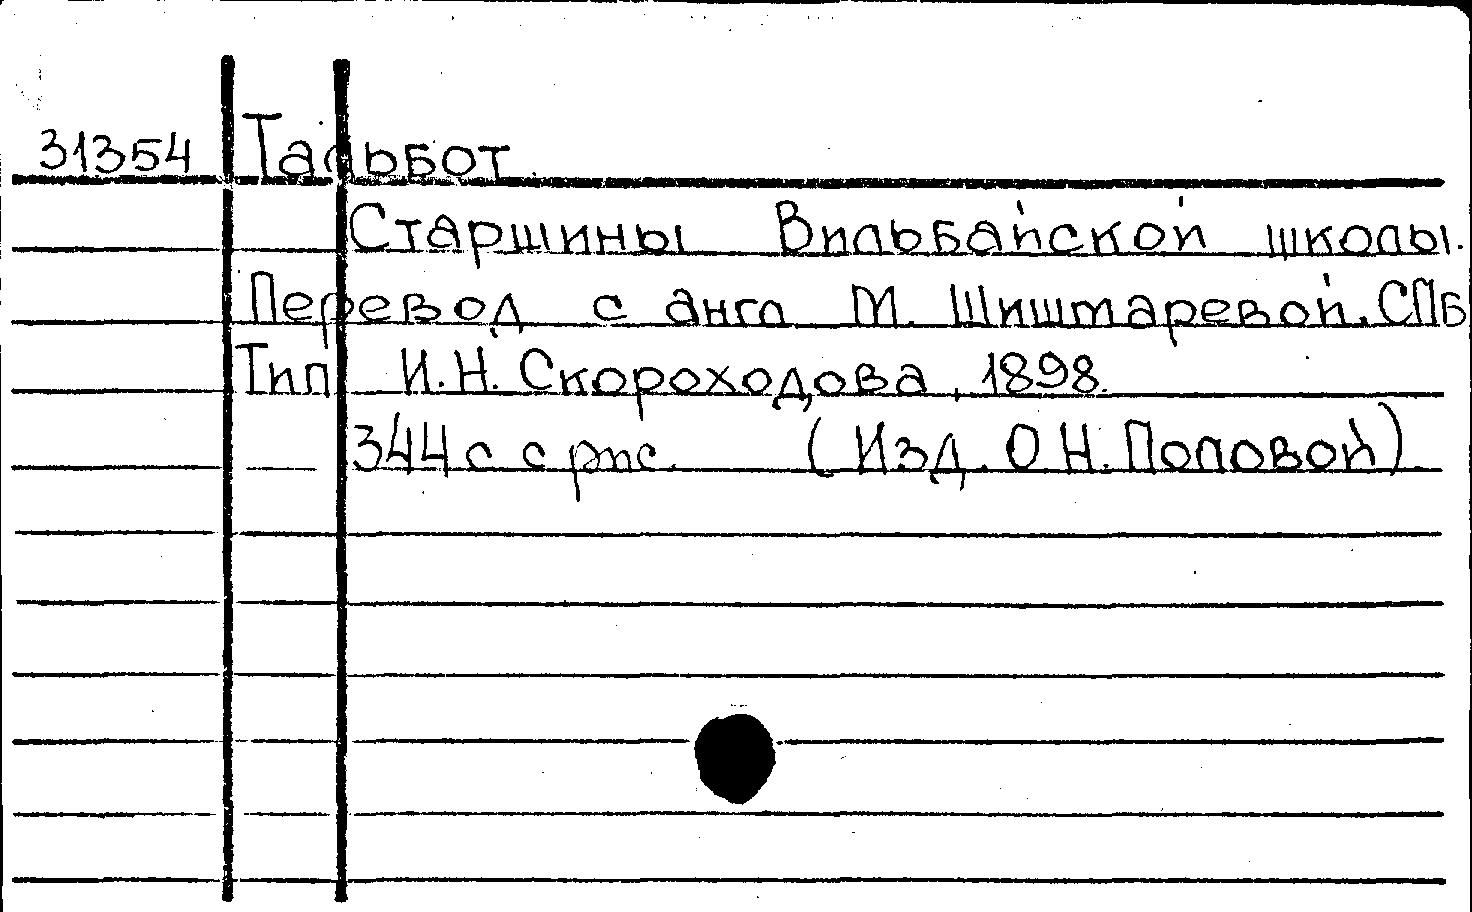 31354 Тальбот.
Старшины Вильбайской школы.
Перевод с англ М. Шиштаревой. СПБ
Тип И.Н. Скороходова, 1898.
344 с с рис. (Изд. О Н. Поповой)